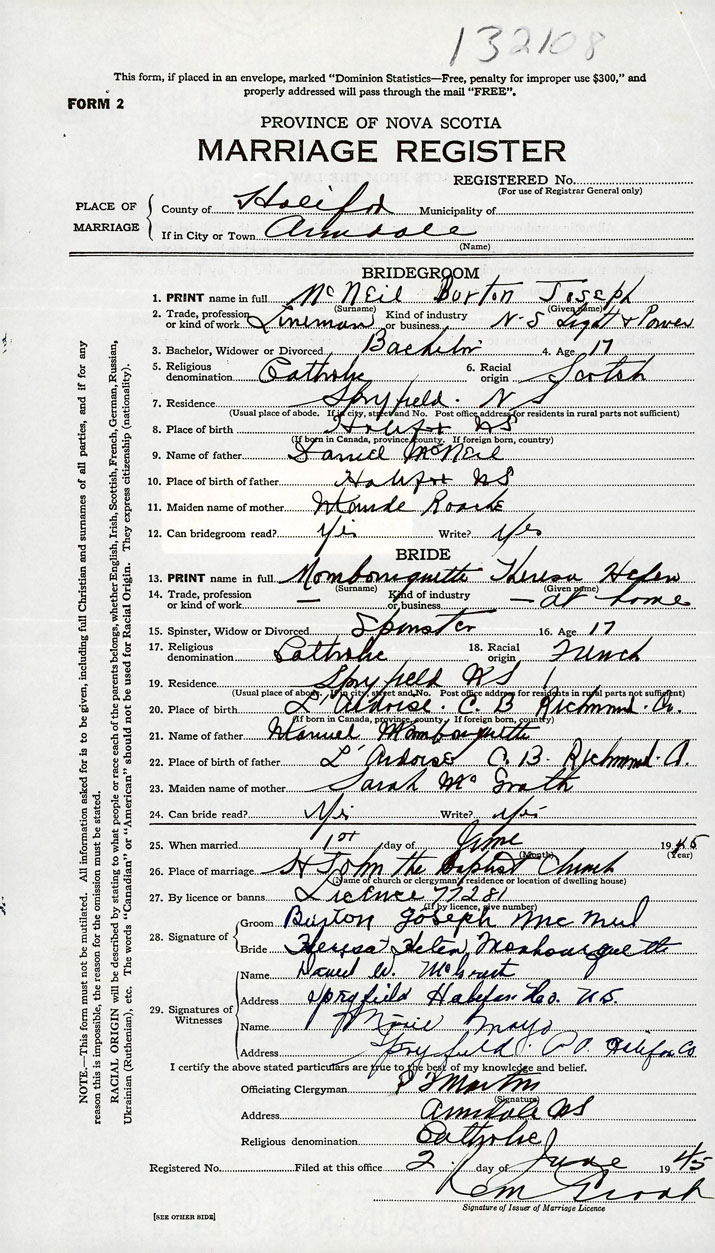 132108
This form, if placed in an envelope, marked "Dominion Statistics—Free, penalty for improper use $300," and
properly addressed will pass through the mail "FREE".
FORM 2
PROVINCE OF NOVA SCOTIA
MARRIAGE REGISTER
REGISTERED No.
(For use of Registrar General only)
PLACE OF MARRIAGE
County of Halifax Municipality of
If in City or Town Armdale
(Name)
BRIDEGROOM
1. PRINT name in full McNeil Burton Joseph
(Surname) (Given name)
2. Trade, profession or kind of work Lineman Kind of industry or business N-S Light & Power
3. Bachelor, Widower or Divorced Bachelor 4. Age 17
5. Religious denomination Catholic 6. Racial origin Scotch
7. Residence Spryfield. N S
(Usual place of abode. If in city, street and No. Post office address for residents in rural parts not sufficient)
8. Place of birth Halifax NS
(If born in Canada, province, county. If foreign born, country)
9. Name of father Daniel McNeil
10. Place of birth of father Halifax NS
11. Maiden name of mother Maude Roarke
12. Can bridegroom read? Yes Write? Yes
BRIDE
13. PRINT name in full Mombourquette Theresa Helen
(Surname) (Given name)
14. Trade, profession or kind of work — Kind of industry or business — at home
15. Spinster, Widow or Divorced Spinster 16. Age 17
17. Religious denomination Catholic 18. Racial origin French
19. Residence Spryfield NS
(Usual place of abode. If in city, street and No. Post office address for residents in rural parts not sufficient)
20. Place of birth L'Ardoise. C. B Richmond Co.
(If born in Canada, province, county If foreign born, country)
21. Name of father Manuel Mombourquette
22. Place of birth of father L'Ardoise C. B. Richmond Co.
23. Maiden name of mother Sarah McGrath
24. Can bride read? Yes Write? Yes
25. When married 1st day of June 1945
(Month) (Year)
26. Place of marriage St John the Baptist Church
(Name of church or clergyman's residence or location of dwelling house)
27. By licence or banns Licence 77281
(If by licence, give number)
28. Signature of
Groom Burton Joseph Mc Neil
Bride Theresa Helen Mombourquette
29. Signatures of Witnesses
Name Daniel W.
Address Spryfield Halifax Co. N.S.
Name Marie Mayo
Address Spryfield Halifax Co
I certify the above stated particulars are true to the best of my knowledge and belief.
Officiating Clergyman Martin
(Signature)
Address Armdale NS
Religious denomination Catholic
Registered No. Filed at this office 2 day of June 1945
Signature of Issuer of Marriage Licence
[SEE OTHER SIDE]
NOTE.—This form must not be mutilated. All information asked for is to be given, including full Christian and surnames of all parties, and if for any
reason this is impossible, the reason for the omission must be stated.
RACIAL ORIGIN will be described by stating to what people or race each of the parents belongs, whether English, Irish, Scottish, French, German, Russian,
Ukrainian (Ruthenian), etc. The words "Canadian" or "American" should not be used for Racial Origin. They express citizenship (nationality).